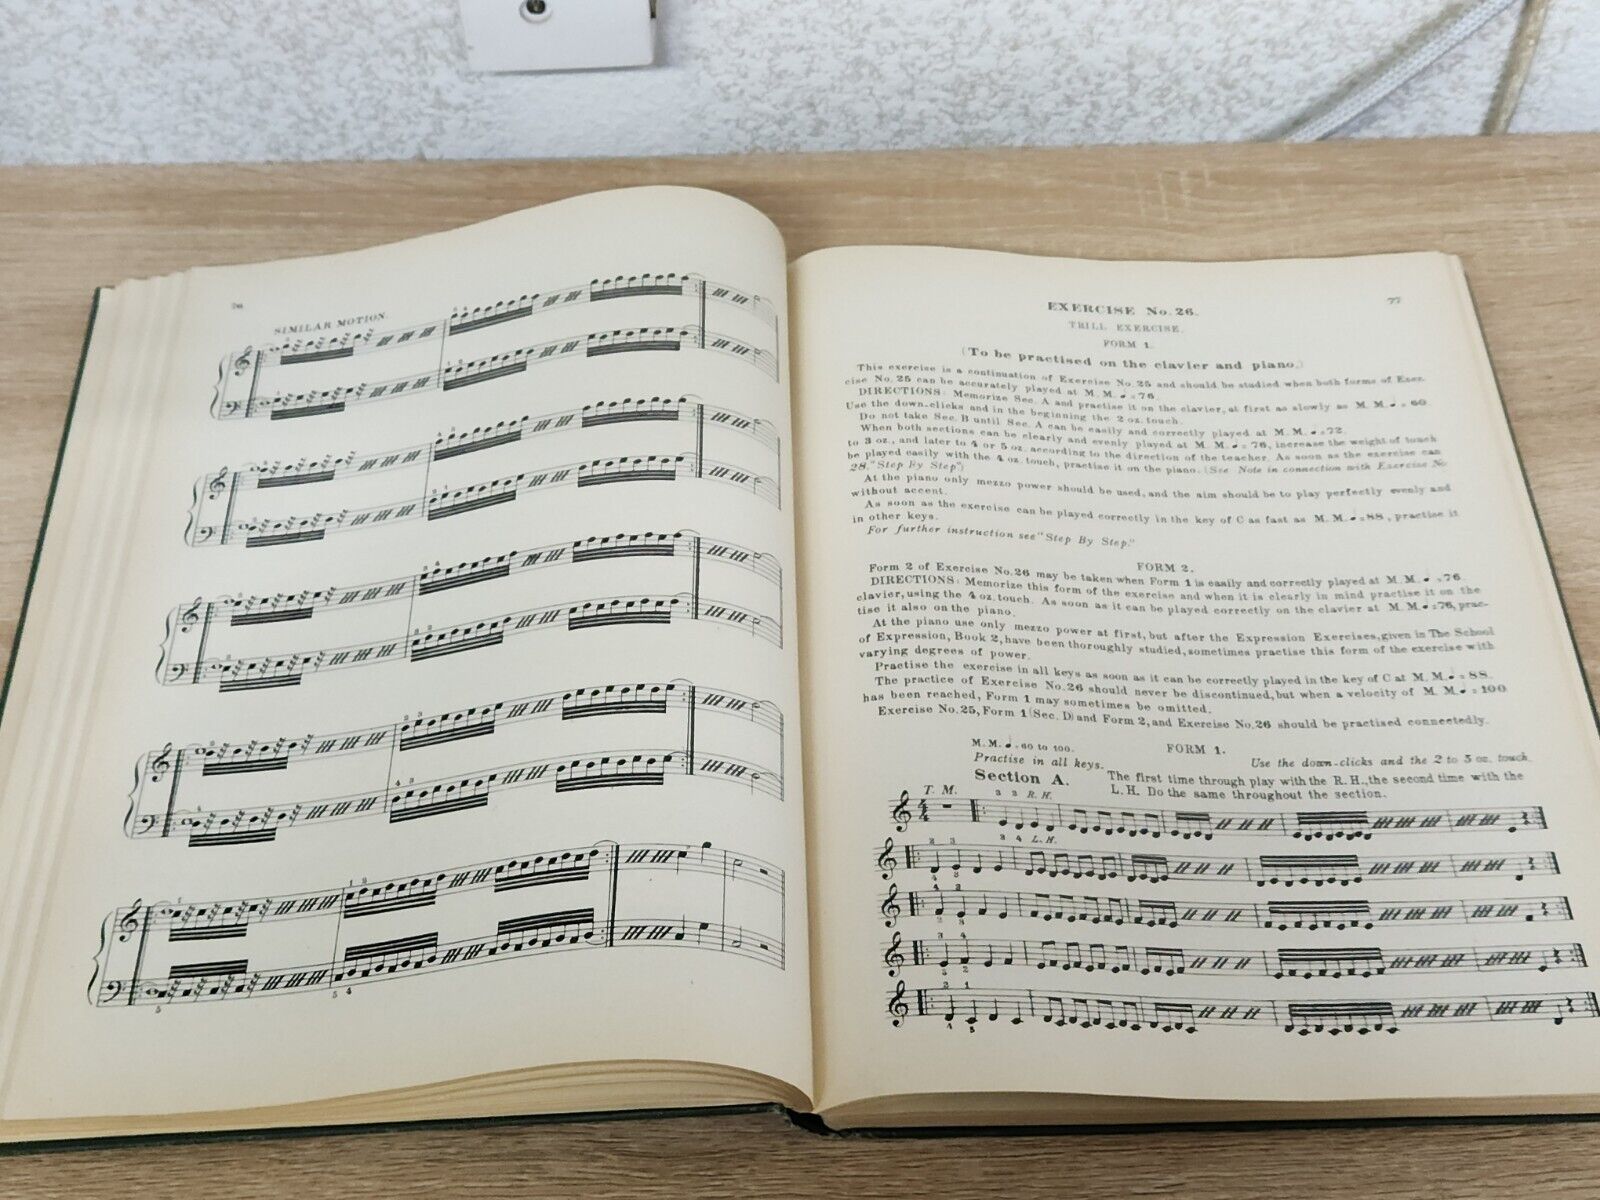 76
SIMILAR MOTION.
77
EXERCISE No. 26.
TRILL EXERCISE.
FORM 1.
(To be practised on the clavier and piano.)
This exercise is a continuation of Exercise No. 25 and should be studied when both forms of Exer-
cise No. 25 can be accurately played at M. M. ♩ = 76
DIRECTIONS: Memorize Sec. A and practise it on the clavier, at first as slowly as M. M. ♩ = 60
Use the down-clicks and in the beginning the 2 oz. touch.
Do not take Sec. B until Sec. A can be easily and correctly played at M. M. ♩ = 72.
When both sections can be clearly and evenly played at M. M. ♩ = 76, increase the weight of touch
to 3 oz., and later to 4 or 5 oz. according to the direction of the teacher. As soon as the exercise can
be played easily with the 4 oz. touch, practise it on the piano. (See Note in connection with Exercise No
28. "Step By Step")
At the piano only mezzo power should be used, and the aim should be to play perfectly evenly and
without accent.
As soon as the exercise can be played correctly in the key of C as fast as M. M. ♩ = 88, practise it
in other keys.
For further instruction see "Step By Step."
FORM 2.
Form 2 of Exercise No. 26 may be taken when Form 1 is easily and correctly played at M. M. ♩ = 76.
DIRECTIONS: Memorize this form of the exercise and when it is clearly in mind practise it on the
clavier, using the 4 oz. touch. As soon as it can be played correctly on the clavier at M. M. ♩ = 76, prac-
tise it also on the piano.
At the piano use only mezzo power at first, but after the Expression Exercises, given in The School
of Expression, Book 2, have been thoroughly studied, sometimes practise this form of the exercise with
varying degrees of power.
Practise the exercise in all keys as soon as it can be correctly played in the key of C at M. M. ♩ = 88.
The practice of Exercise No. 26 should never be discontinued, but when a velocity of M. M. ♩ = 100
has been reached, Form 1 may sometimes be omitted.
Exercise No. 25, Form 1 (Sec. D) and Form 2, and Exercise No. 26 should be practised connectedly.
M. M. ♩ = 60 to 100.
FORM 1.
Practise in all keys.
Use the down-clicks and the 2 to 5 oz. touch.
Section A.
The first time through play with the R. H., the second time with the
L. H. Do the same throughout the section.
T. M.
3 2 R. H.
3 4 L. H.